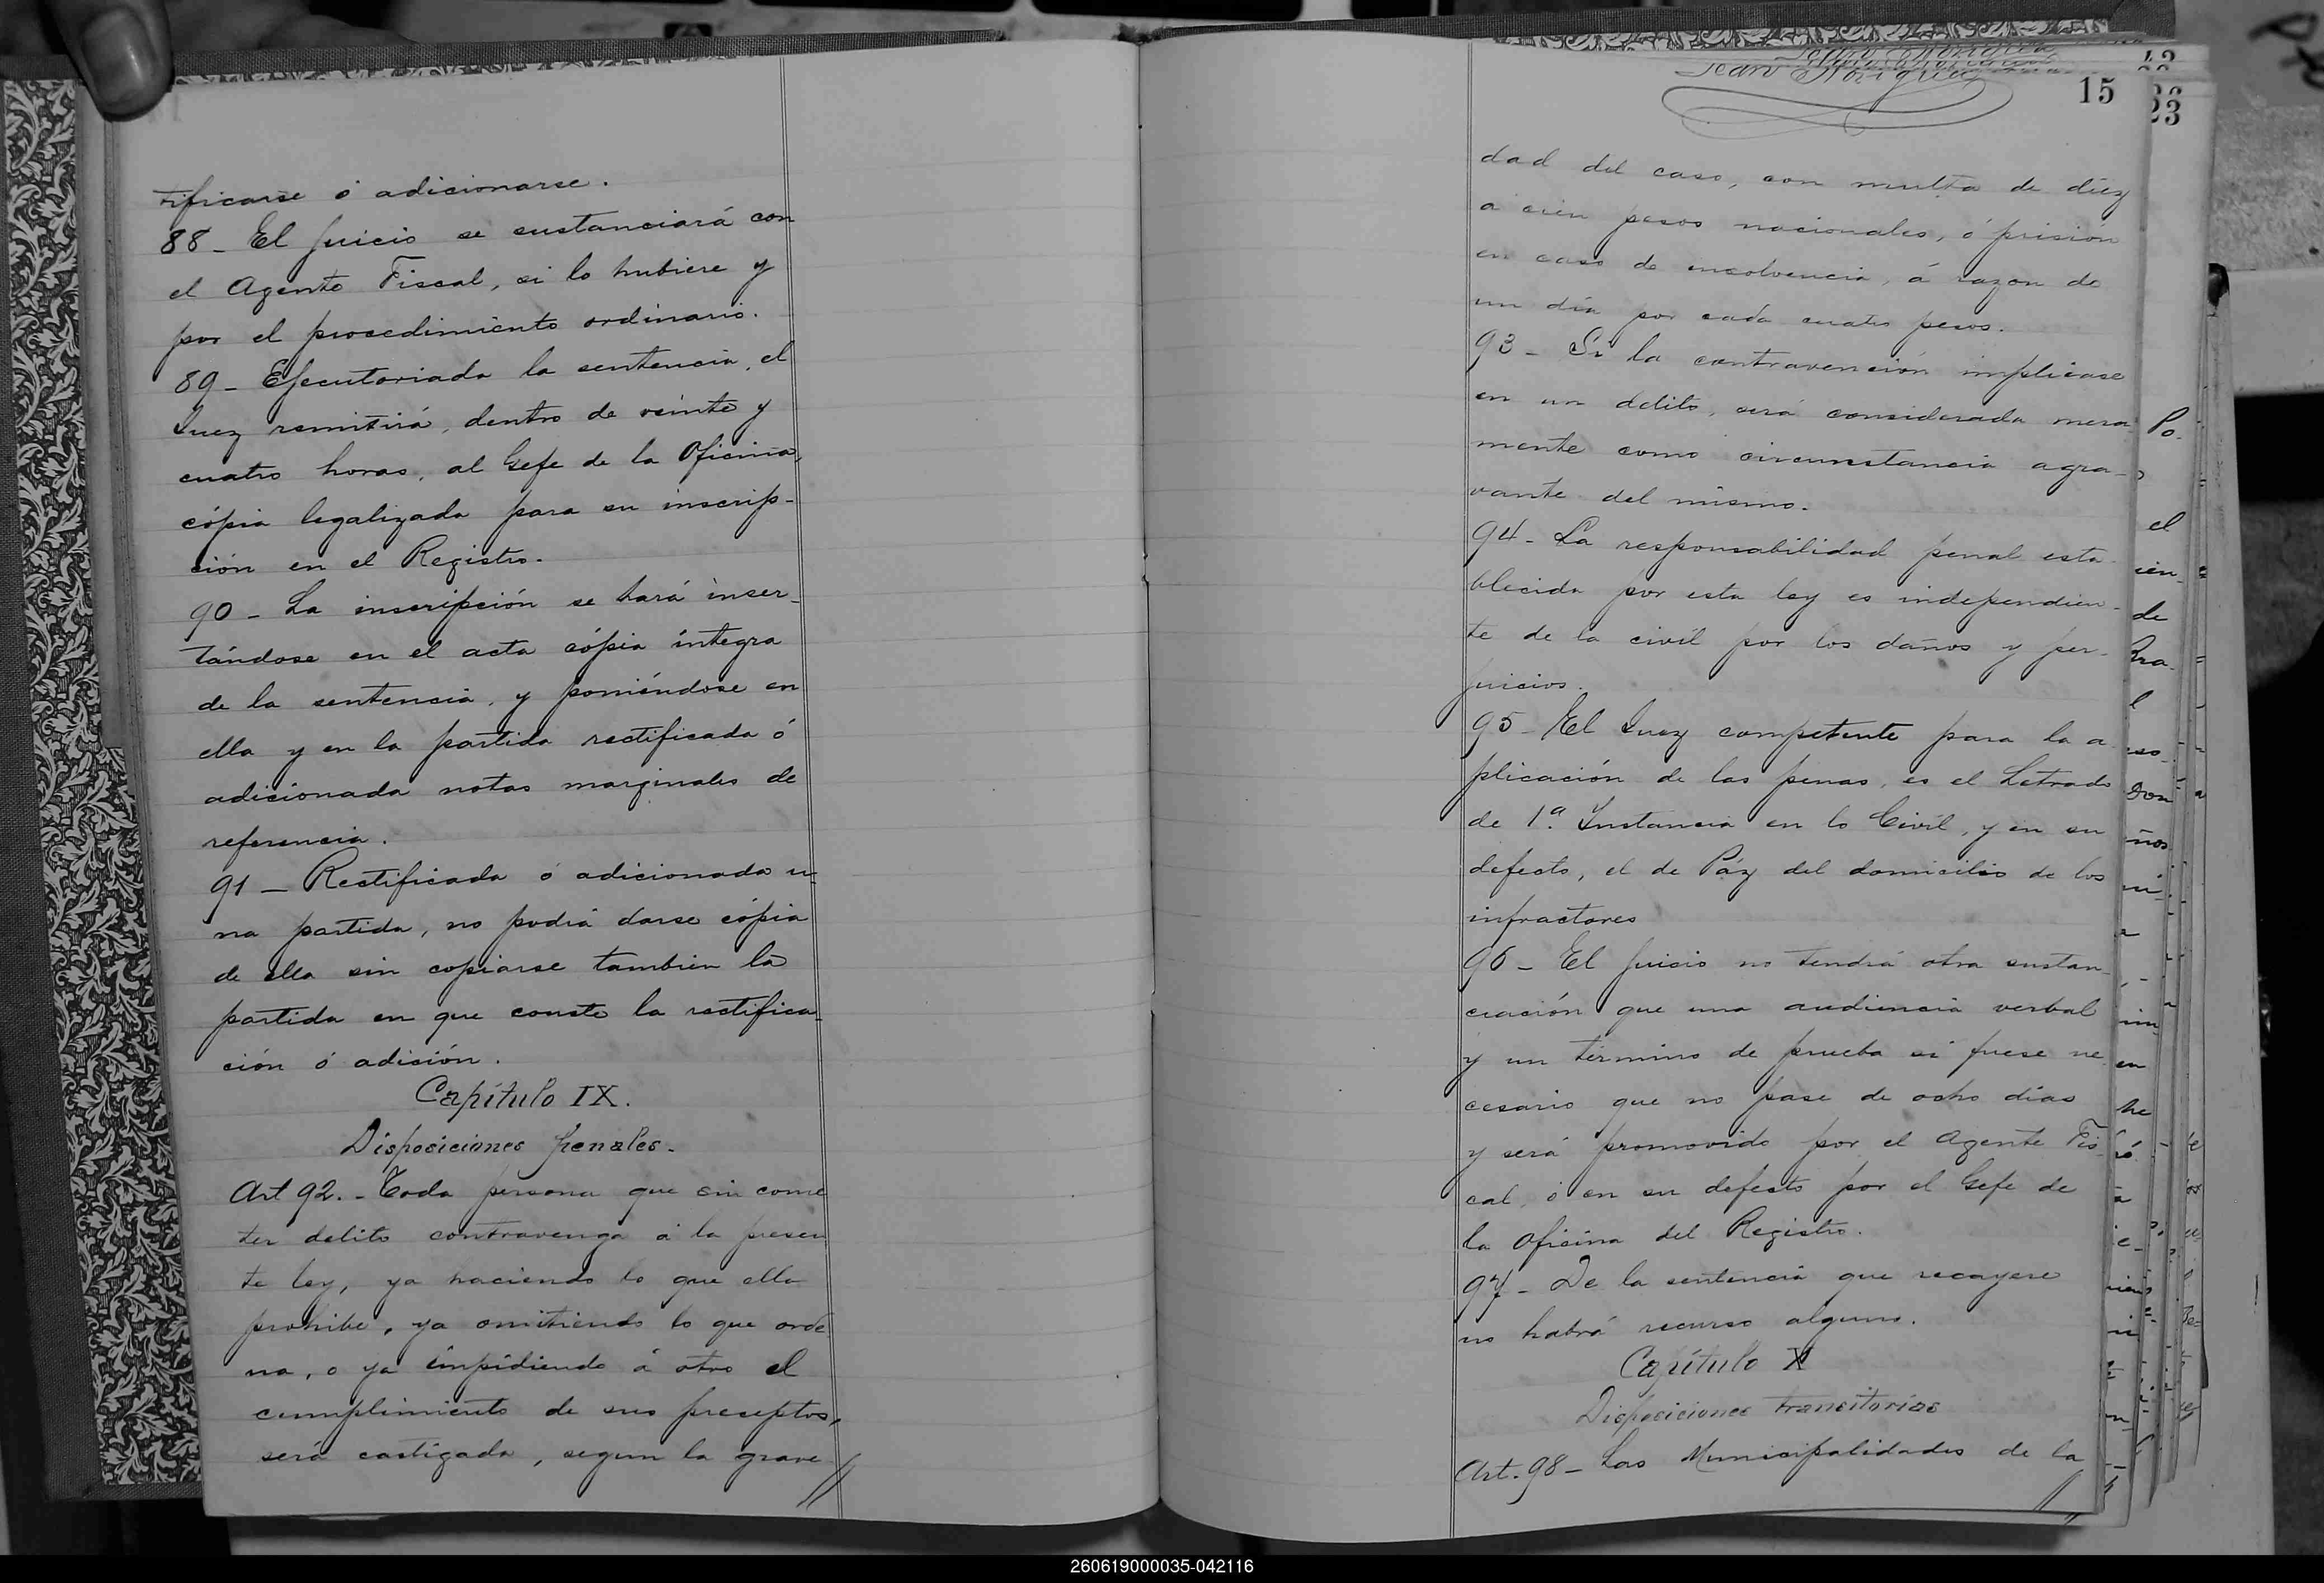 tificarse ó adicionarse.
88 _ El juicio se sustanciará con
el Agente Fiscal, si lo hubiere y
por el procedimiento ordinario.
89 _ Ejecutoriada la sentencia, el
Juez remitirá, dentro de veinte y
cuatro horas, al Gefe de la Oficina,
cópia legalizada para su inscrip-
ción en el Registro.
90 _ La inscripción se hará inser-
tándose en el acta cópia íntegra
de la sentencia, y poniéndose en
ella y en la partida rectificada ó
adicionada notas marginales de
referencia.
91 _ Rectificada ó adicionada u-
na partida, no podrá darse cópia
de ella sin copiarse tambien la
partida en que conste la rectifica-
ción ó adición.
Capítulo IX.
Disposiciones penales.
Art 92. _ Toda persona que sin come
ter delito contravenga á la presen
te ley, ya haciendo lo que ella
prohibe, ya omitiendo lo que orde
na, o ya impidiendo á otro el
cumplimiento de sus preceptos,
será castigada, segun la grave
15
23
dad del caso, con multa de diez
a cien pesos nacionales, ó prisión
en caso de insolvencia, á razon de
un día por cada cuatro pesos.
93 _ Si la contravención implicase
en un delito, será considerada mera
mente como circunstancia agra-
vante del mismo.
94 _ La responsabilidad penal esta-
blecida por esta ley es independien-
te de la civil por los daños y per-
juicios.
95 _ El Juez competente para la a
plicación de las penas, es el Letrado
de 1ª. Instancia en lo Civil, y en su
defecto, el de Páz del domicilio de los
infractores
96 _ El juicio no tendrá otra sustan
ciación que una audiencia verbal
y un término de prueba si fuese ne
cesario que no pase de ocho días
y será promovido por el Agente Fis
cal, ó en su defecto por el Gefe de
la Oficina del Registro.
97 _ De la sentencia que recayere
no habrá recurso alguno.
Capítulo X
Disposiciones transitorias
Art. 98 _ Las Municipalidades de la
260619000035-042116